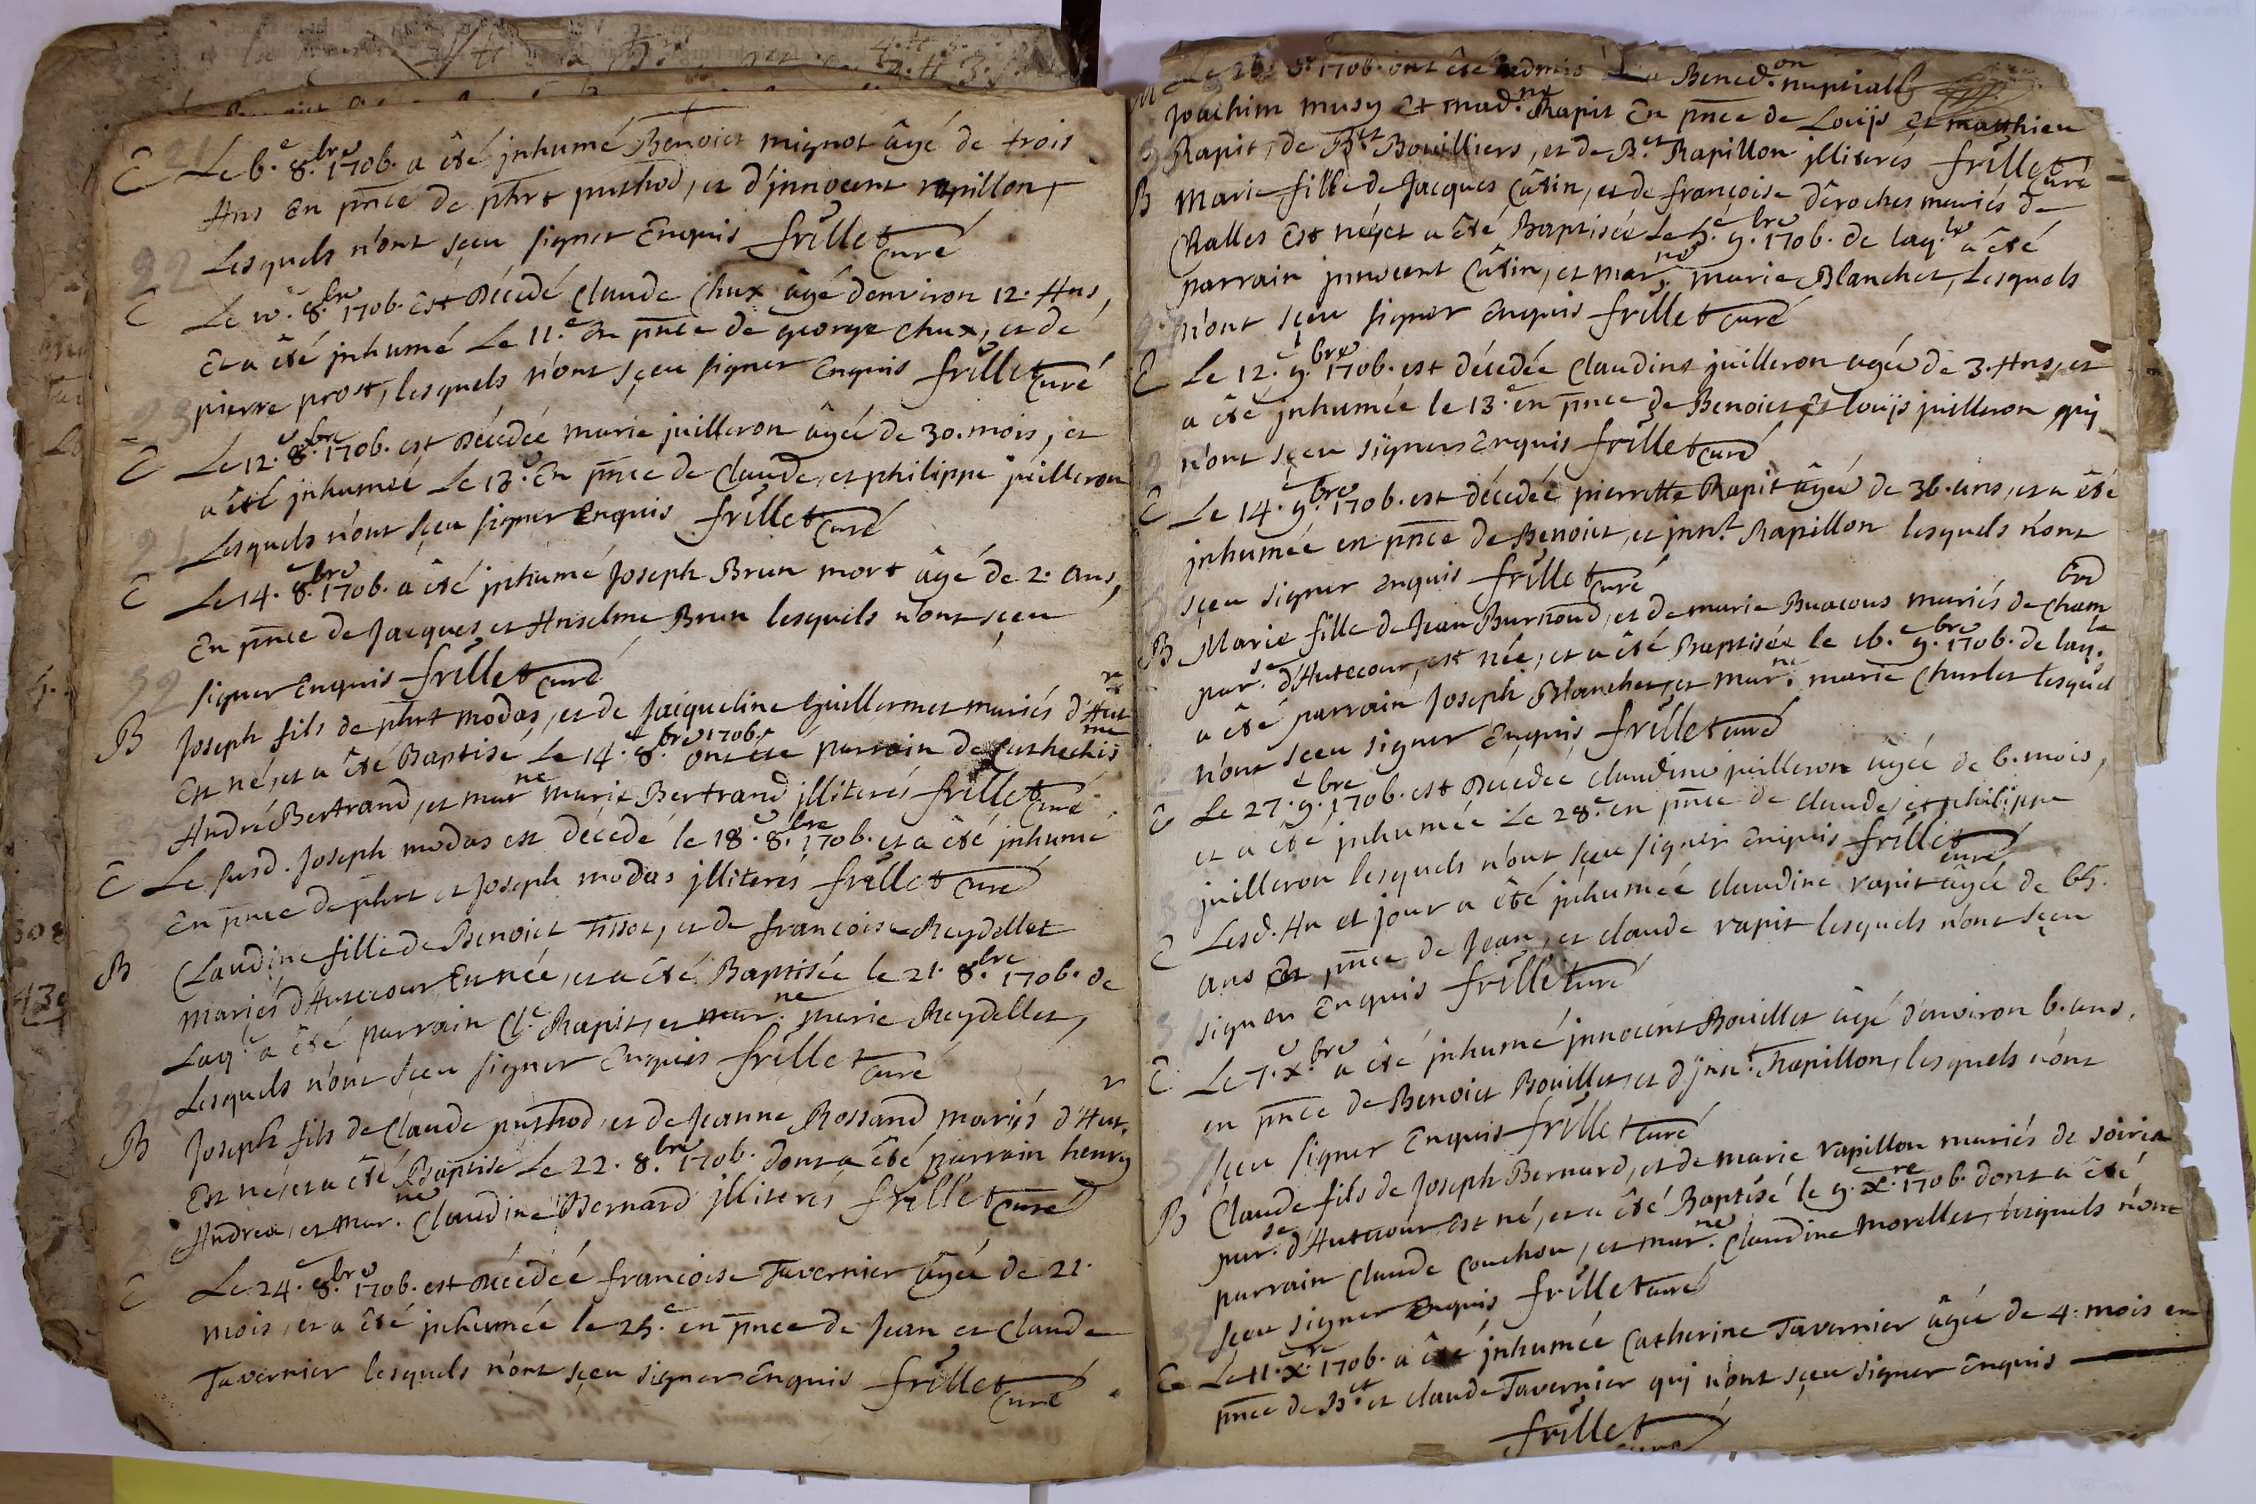 E Le 6.e 8.bre 1706. a été jnhumé Benoict mignot âgé de trois
Ans En pnce de phrt puthod, et d'jnnocent rapillon,
Lesquels n'ont sçeu signer Enquis frillet Curé
E Le 10.e 8.bre 1706. Est Décédé Claude Chux âgé denviron 12. Ans,
Et a été jnhumé Le 11.e En pnce de george chux, et de
pierre prost, lesquels n'ont sçeu signer Enquis frillet Curé
E Le 12.e 8.bre 1706. est Décédée marie juilleron âgée de 30. mois, et
a été jnhumée Le 13.e En pnce de Claude, et philippe juilleron
Lesquels n'ont sçeu signer Enquis frillet Curé
E Le 14.e 8.bre 1706. a été jnhumé Joseph Brun mort âgé de 2. ans,
En pnce de Jacques et Anselme Brun lesquels n'ont sçeu
signer Enquis frillet Curé
B Joseph fils de phrt modas, et de Jaiqueline Guillermet mariés d'Aut.r
Est né, et a été Baptisé Le 14.e 8.bre 1706. ont été parrain de Cathechis.me
André Bertrand, et mar.ne marie Bertrand jlliterés frillet Curé
E Le susd. Joseph modas est décédé le 18.e 8.bre 1706. et a été jnhumé
En pnce de phrt et Joseph modas jlliterés frillet Curé
B Claudine fille de Benoict Tissot, et de francoise Reydellet
mariés d'Autecour Est née, et a été Baptisée le 21. 8.bre 1706. de
Laq.le a été parrain Cl.e Rapit, et mar.ne marie Reydellet,
Lesquels n'ont sçeu signer Enquis frillet Curé
B Joseph fils de Claude puthod, et de Jeanne Rossand mariés d'Aut.r
Est né, et a été Baptisé Le 22. 8.bre 1706. dont a été parrain henry
Andrea, et mar.ne Claudine Bernard jlliterés frillet Curé
E Le 24.e 8.bre 1706. est Décédée francoise Tavernier âgée de 21.
mois, et a été jnhumée le 25.e en pnce de Jean et Claude
Tavernier lesquels n'ont sçeu signer Enquis frillet Curé
M Le 26. 8. 1706. ont été admis La Bened.on nuptialle
Joachim musy Et mad.ne Rapit En pnce de Louijs et matthieu
Rapit, de B.et Bouilliers, et de B.et Rapillon jlliterés frillet Curé
B Marie fille de Jacques Câtin, et de françoise Déroches mariés de
Challes Est née, et a été Baptisée Le 6.e 9.bre 1706. de laq.le a été
parrain jnnocent Câtin, et mar.ne marie Blanchet, Lesquels
n'ont sçeu signer Enquis frillet curé
E Le 12.e 9.bre 1706. est décédée Claudine juilleron agée de 3. Ans, et
a été jnhumée le 13.e en pnce de Benoict Et louijs juilleron qui
n'ont sçeu signer Enquis frillet curé
E Le 14.e 9.bre 1706. est décedée pierrette Rapit âgée de 36. ans, et a été
jnhumée en pnce de Benoict, et jnn.t Rapillon lesquels n'ont
sçeu signer enquis frillet curé
B Marie fille de Jean Burnoud, et de marie Buacous mariés de Cham-bod
par.se d'Autecour, est née, et a été Baptisée le 16.e 9.bre 1706. de laq.le
a été parrain Joseph Blanchet, et mar.ne marie Charlet lesquels
n'ont sçeu signer Enquis frillet curé
E Le 27.e 9.bre 1706. est Décedée claudine juilleron âgée de 6. mois,
et a été jnhumée Le 28.e en pnce de claude, et philippe
juilleron lesquels n'ont sçeu signer Enquis frillet curé
E Lesd. An et jour a été jnhumée claudine rapit âgée de 65.
ans En pnce de Jean, et claude rapit lesquels n'ont sçeu
signer Enquis frillet curé
E Le 7.e X.bre a été jnhumé jnnocent Bouillet âgé d'environ 6. ans,
en pnce de Benoict Bouillet, et d'jnn.t Rapillon, lesquels n'ont
sçeu signer Enquis frillet curé
B Claude fils de Joseph Bernard, et de marie rapillon mariés de soiria
par.se d'Autecour Est né, et a été Baptisé le 9.e X.re 1706. dont a été
parrain Claude Couchou, et mar.ne Claudine morellet, lesquels n'ont
sçeu signer Enquis frillet curé
E Le 11.e X.re 1706. a été jnhumée Catherine Tavernier âgée de 4. mois en
pnce de B.et et claude Tavernier qui n'ont sçeu signer Enquis
frillet curé